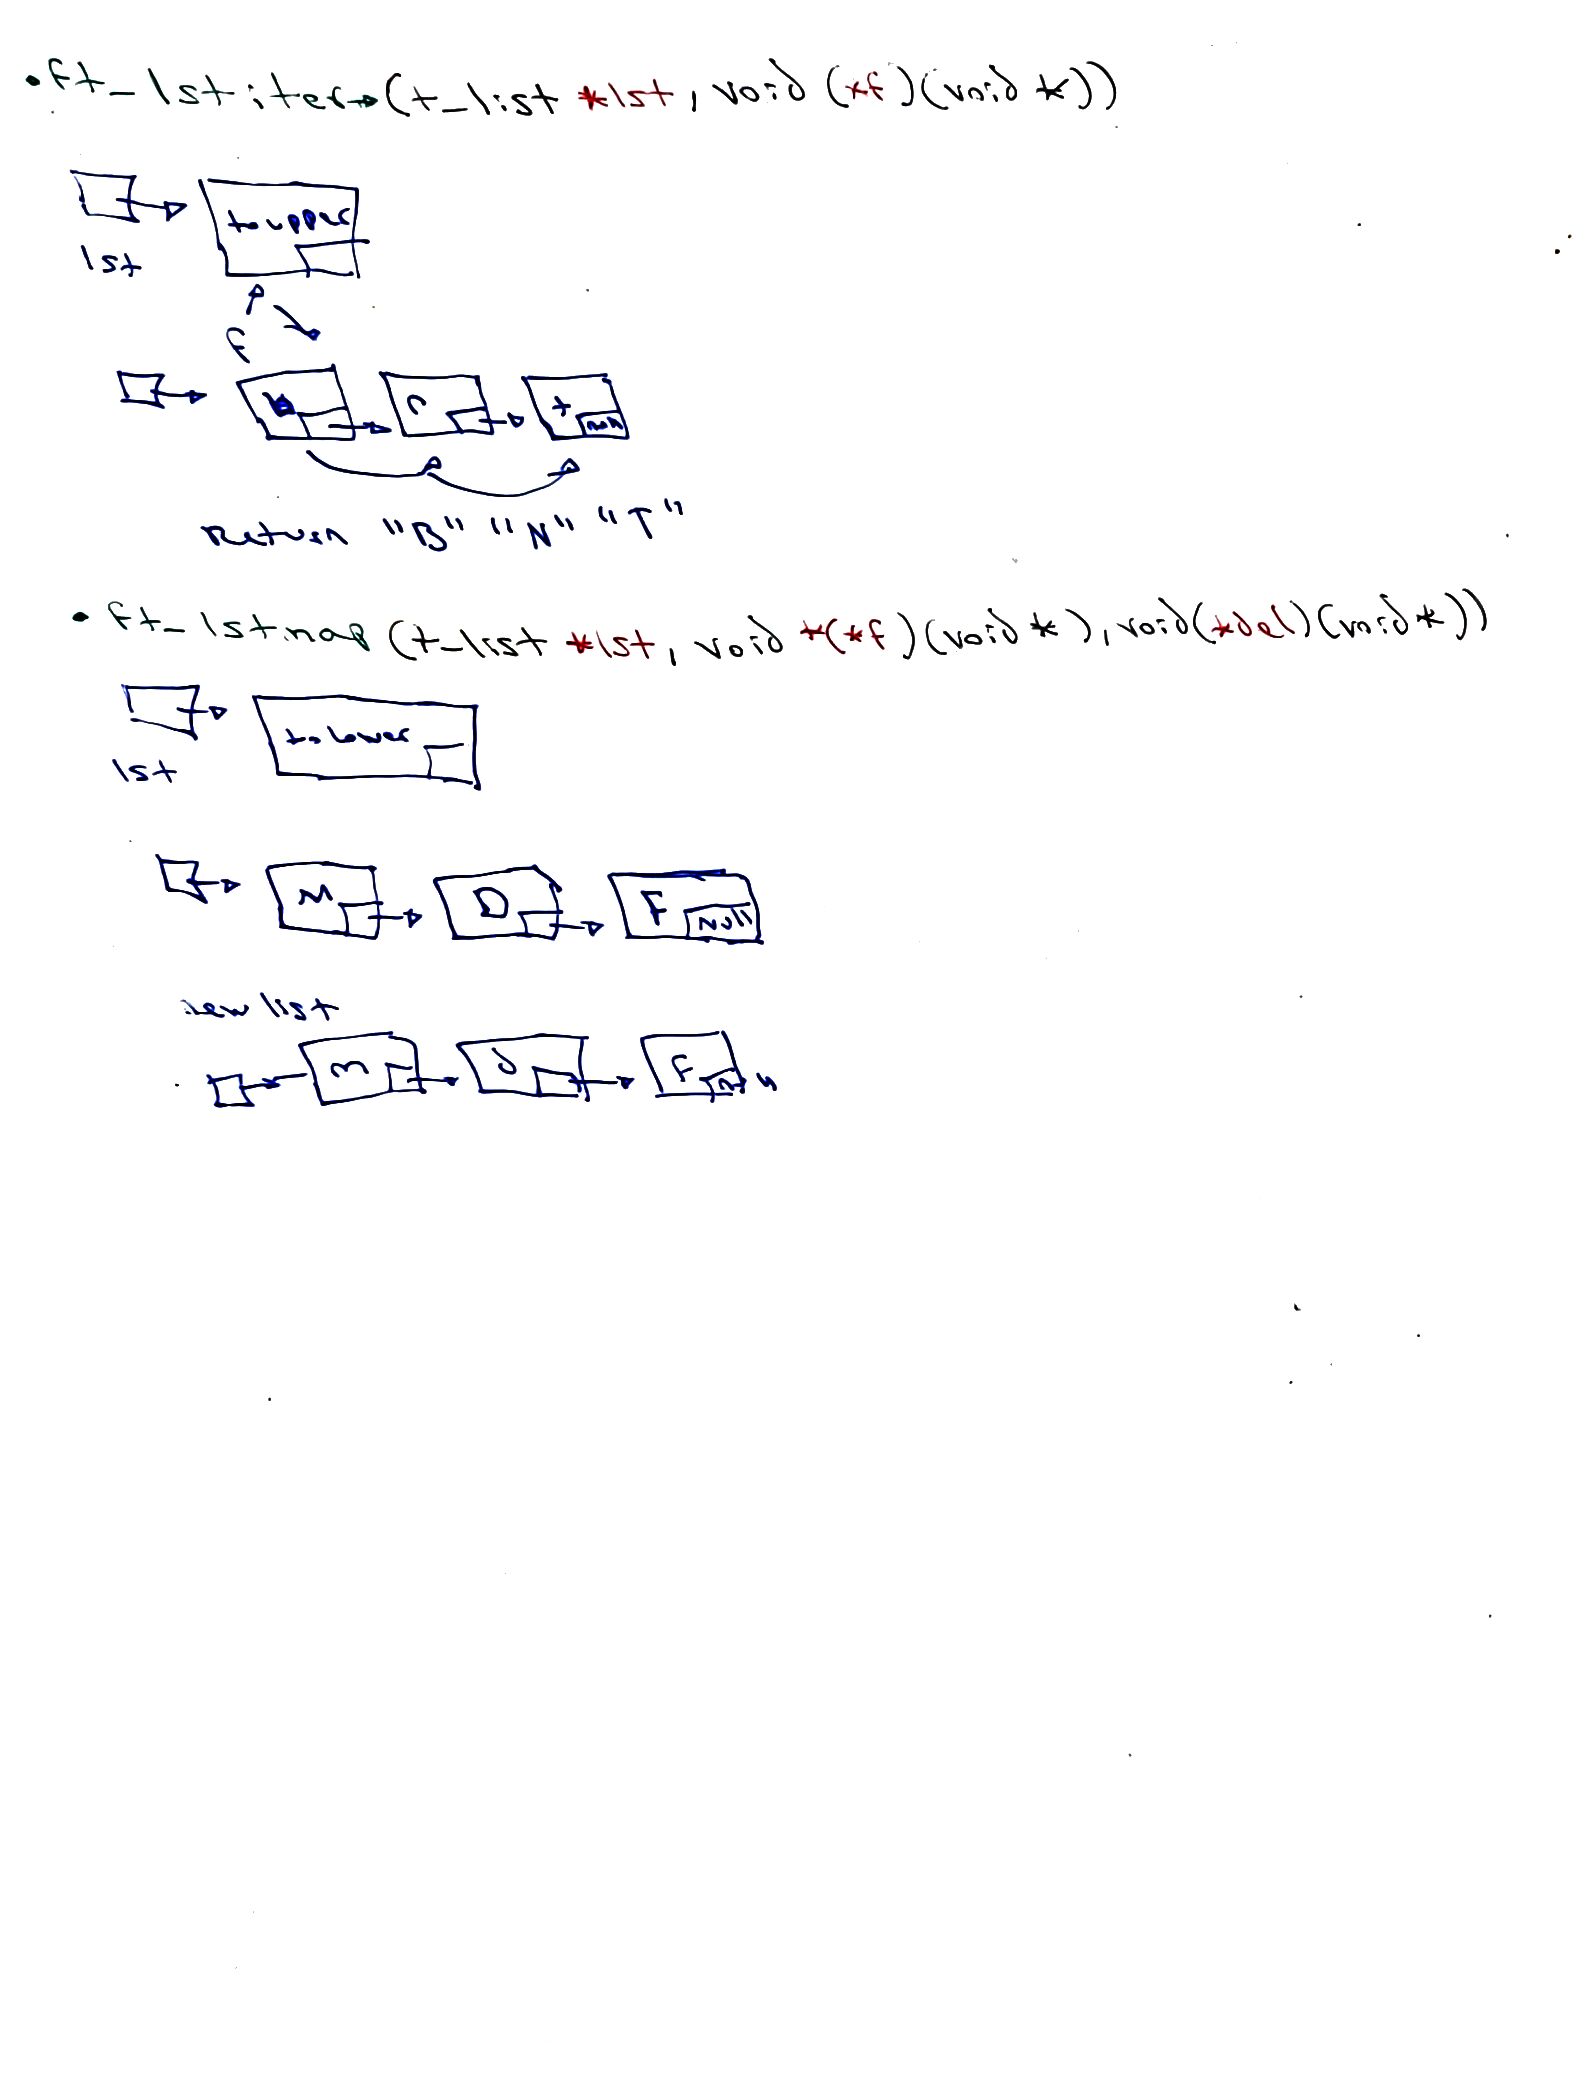 • ft_lstiter→(t_list *lst, void (*f)(void *))
toupper
lst
f
b n t null
Return "B" "N" "T"
• ft_lstmap (t_list *lst, void *(*f)(void *), void(*del)(void*))
tolower
lst
M D F Null
new list
m d F